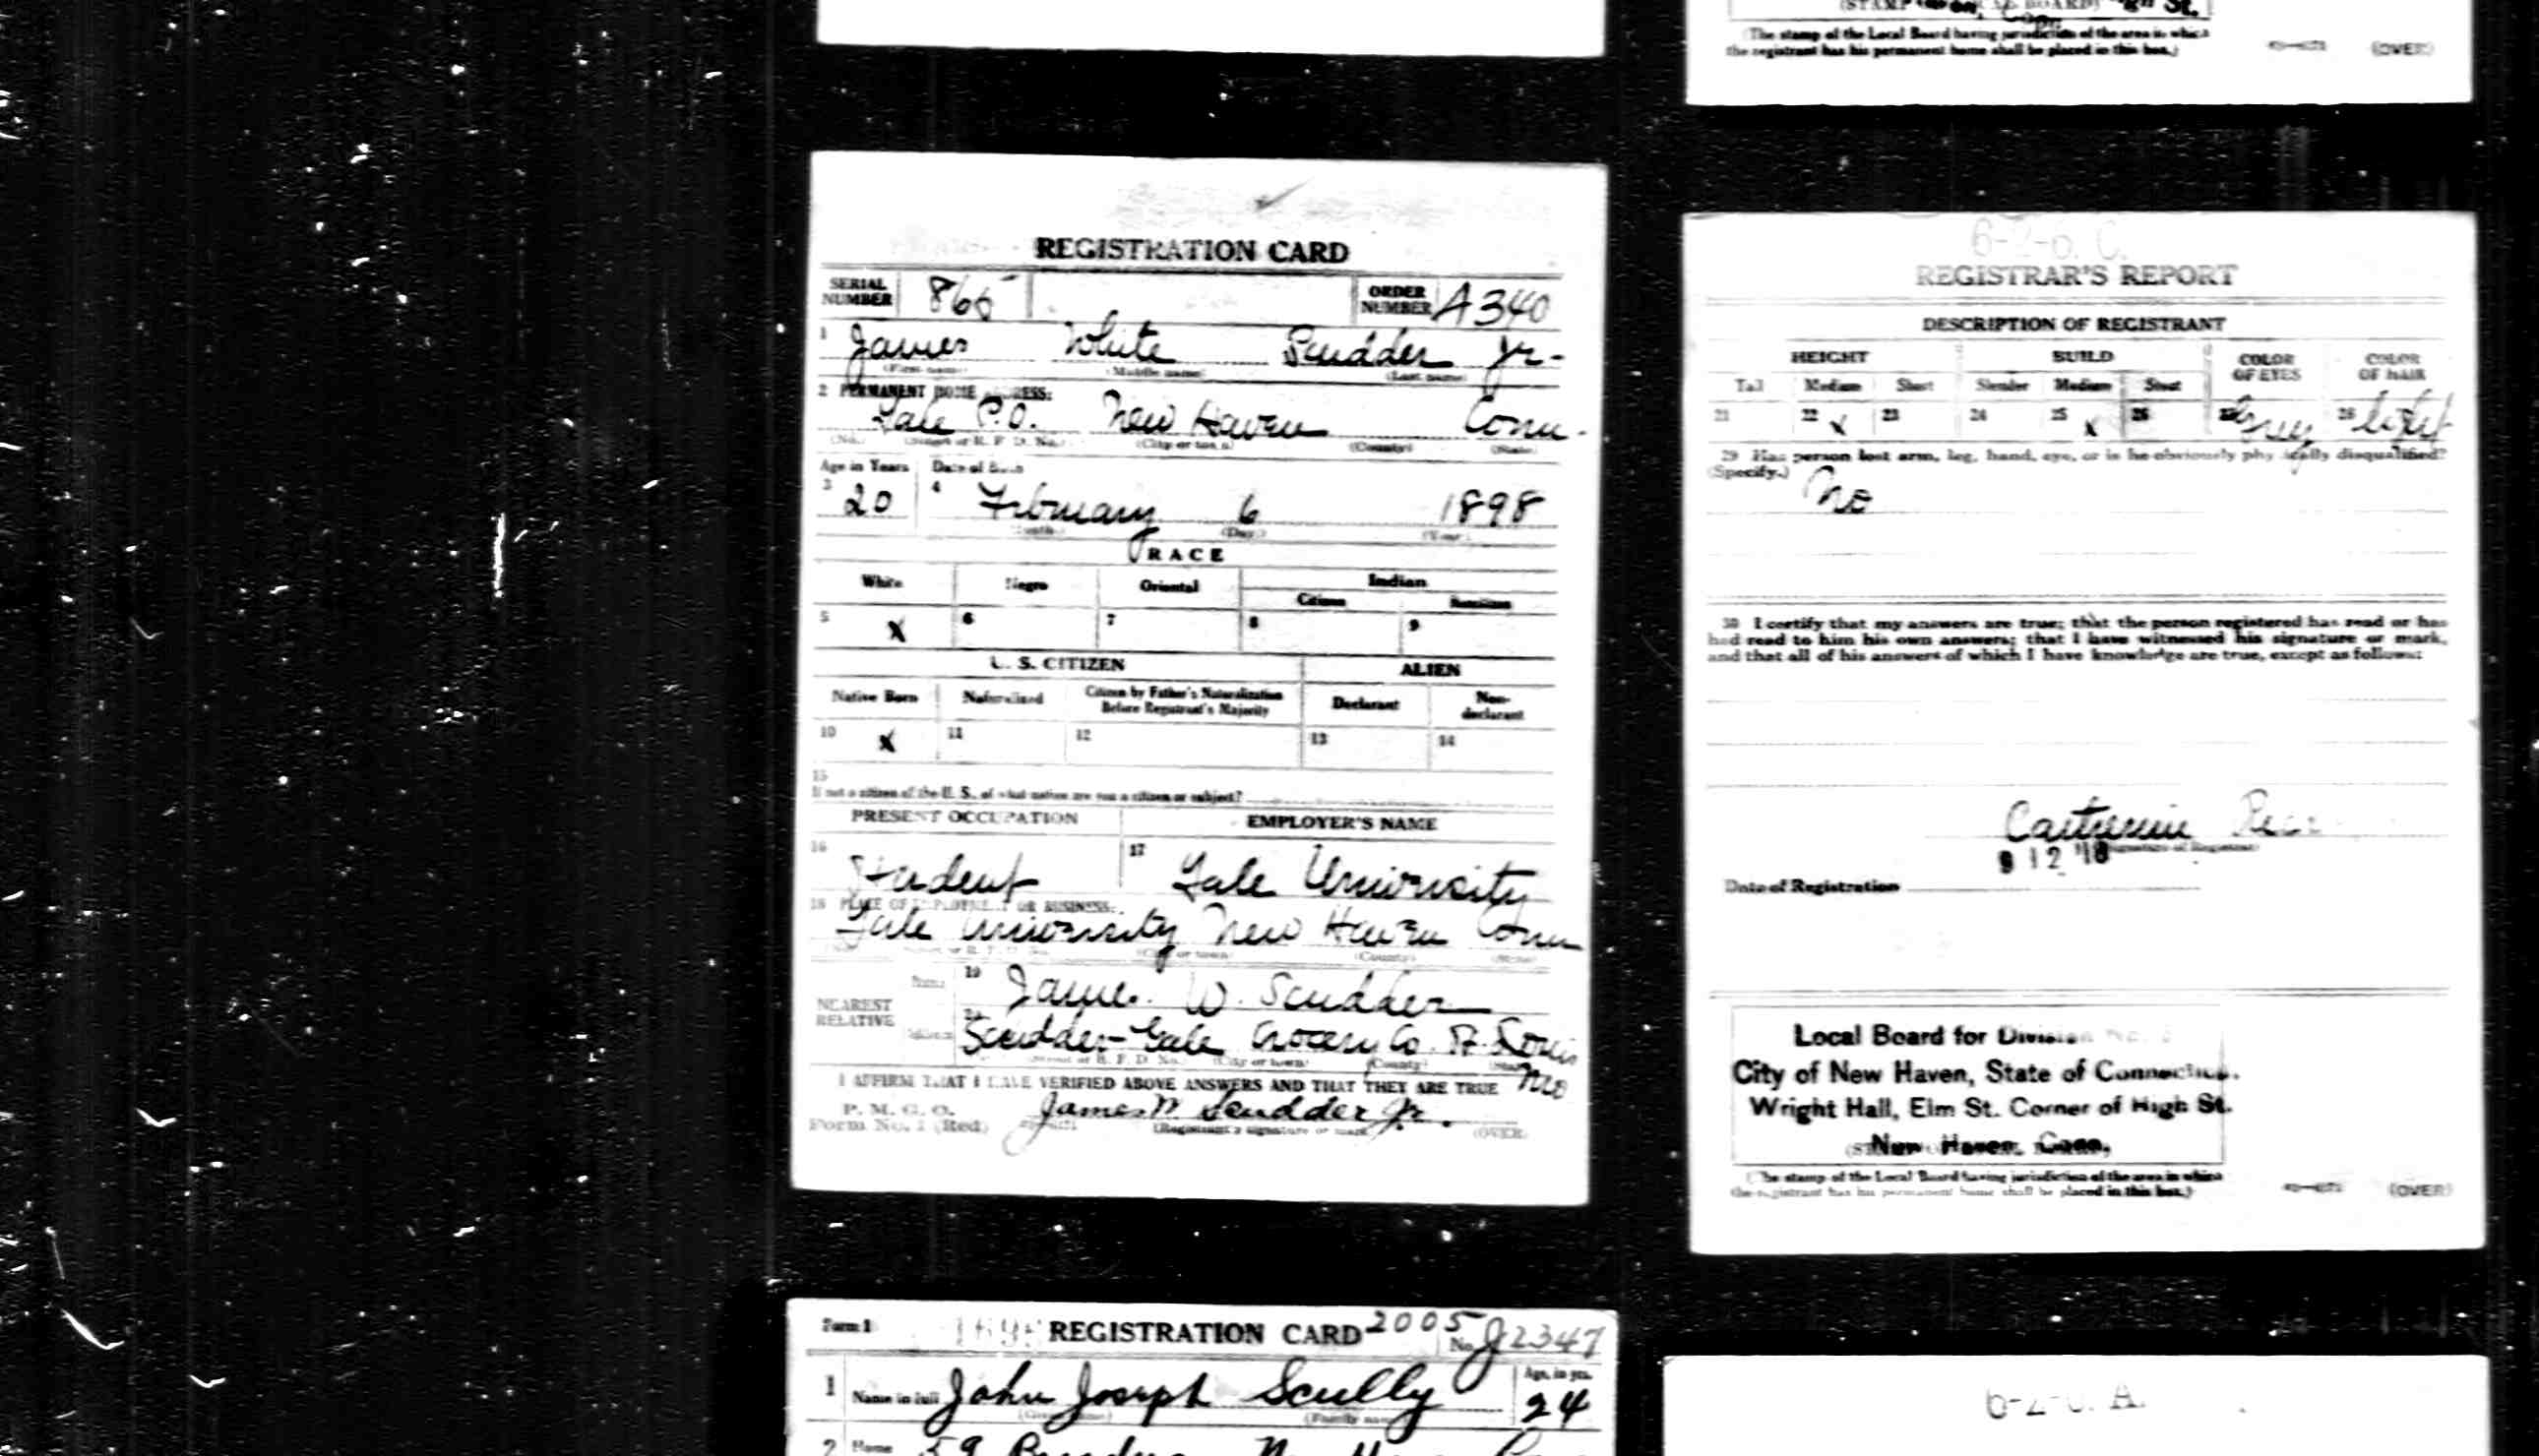 (The stamp of the Local Board having jurisdiction of the area in which
the registrant has his permanent home shall be placed in this box.)
(OVER)
REGISTRATION CARD
SERIAL NUMBER 865 ORDER NUMBER A340
1 James White Scudder Jr.
(First name) (Middle name) (Last name)
2 PERMANENT HOME ADDRESS:
Yale P.O. New Haven Conn.
(No.) (Street or R. F. D. No.) (City or town) (County) (State)
Age in Years Date of Birth
3 20 4 February 6 1898
(Month) (Day) (Year)
RACE
White Negro Oriental Indian
Citizen
5 X 6 7 8 9
U. S. CITIZEN ALIEN
Native Born Naturalized Citizen by Father's Naturalization Before Registrant's Majority Declarant Non-declarant
10 X 11 12 13 14
15
If not a citizen of the U. S., of what nation are you a citizen or subject?
PRESENT OCCUPATION EMPLOYER'S NAME
16 Student 17 Yale University
18 PLACE OF EMPLOYMENT OR BUSINESS:
Yale University New Haven Conn
(City or town) (County) (State)
NEAREST RELATIVE
Name 19 James W. Scudder
Address Scudder-Gale Grocery Co. St Louis Mo
(Street or R. F. D. No.) (City or town) (County)
I AFFIRM THAT I HAVE VERIFIED ABOVE ANSWERS AND THAT THEY ARE TRUE
P. M. G. O.
Form No. 1 (Red) James W. Scudder Jr.
(Registrant's signature or mark) (OVER)
6-2-6. C.
REGISTRAR'S REPORT
DESCRIPTION OF REGISTRANT
HEIGHT BUILD COLOR OF EYES COLOR OF HAIR
Tall Medium Short Slender Medium Stout
21 22 X 23 24 25 X 26 27 Grey 28 light
29 Has person lost arm, leg, hand, eye, or is he obviously physically disqualified?
(Specify.) No
30 I certify that my answers are true; that the person registered has read or has
had read to him his own answers; that I have witnessed his signature or mark,
and that all of his answers of which I have knowledge are true, except as follows:
Catherine
(Signature of Registrar)
Date of Registration 9 12 18
Local Board for Division No.
City of New Haven, State of Connecticut.
Wright Hall, Elm St. Corner of High St.
New Haven, Conn.
(The stamp of the Local Board having jurisdiction of the area in which
the registrant has his permanent home shall be placed in this box.)
(OVER)
Form 1 REGISTRATION CARD 2005 No. 2347
1 Name in full John Joseph Scully Age, in yrs. 24
(Given name) (Family name)
2 Home 59